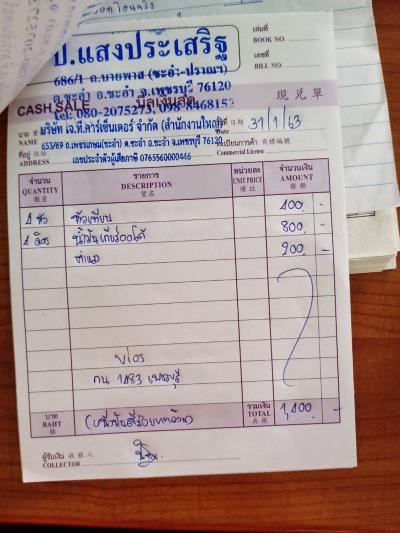 ป.แสงประเสริฐ
686/1 ถ.นายพาส (ชะอำ-ปราณฯ)
ต.ชะอำ อ.ชะอำ จ.เพชรบุรี 76120
Tel:080-2075273, 098-8468153
เล่มที่
BOOK NO.
เลขที่
BILL NO.
CASH SALE บิลเงินสด 現兌單
นาม
NAME บริษัท เจ.ที.คาร์เซ็นเตอร์ จำกัด (สำนักงานใหญ่)
วันที่ 日期
Date 31/1/63
ที่อยู่ 住址
ADDRESS 653/69 ถ.เพชรเกษม(ชะอำ) ต.ชะอำ อ.ชะอำ จ.เพชรบุรี 76120
เลขประจำตัวผู้เสียภาษี 0763560000446
ทะเบียนการค้า 商標編號
Commercial License
จำนวน รายการ หน่วยละ จำนวนเงิน
QUANTITY DESCRIPTION UNIT PRICE AMOUNT
數量 貨名 備註 銀額
4 หัว หัวเทียน 400 -
4 ลิตร น้ำมันเกียร์ออโต้ 800 -
ค่าแรง 200 -
vios
กน 1483 เพชรบุรี
บาท รวมเงิน
BAHT (หนึ่งพันสี่ร้อยบาทถ้วน) TOTAL 1,400 -
ผู้รับเงิน 收銀人
COLLECTOR